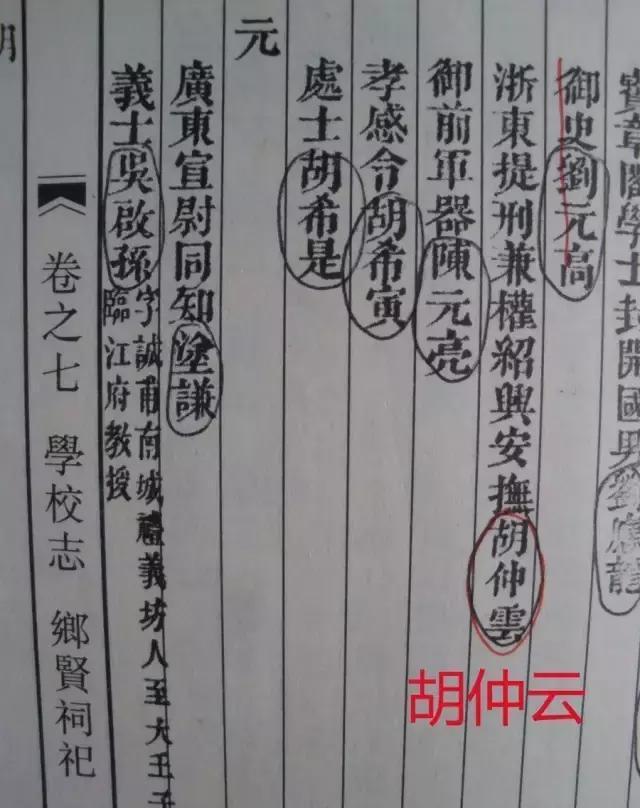 寶章閣學士封開國男劉應龍
御史劉元高
浙東提刑兼權紹興安撫胡仲雲
御前軍器陳元亮
孝感令胡希寅
處士胡希是
元
廣東宣慰同知塗謙
義士吳啟孫字誠甫南城禮義坊人至大壬子
臨江府教授
卷之七 學校志 鄉賢祠祀
明
胡仲云